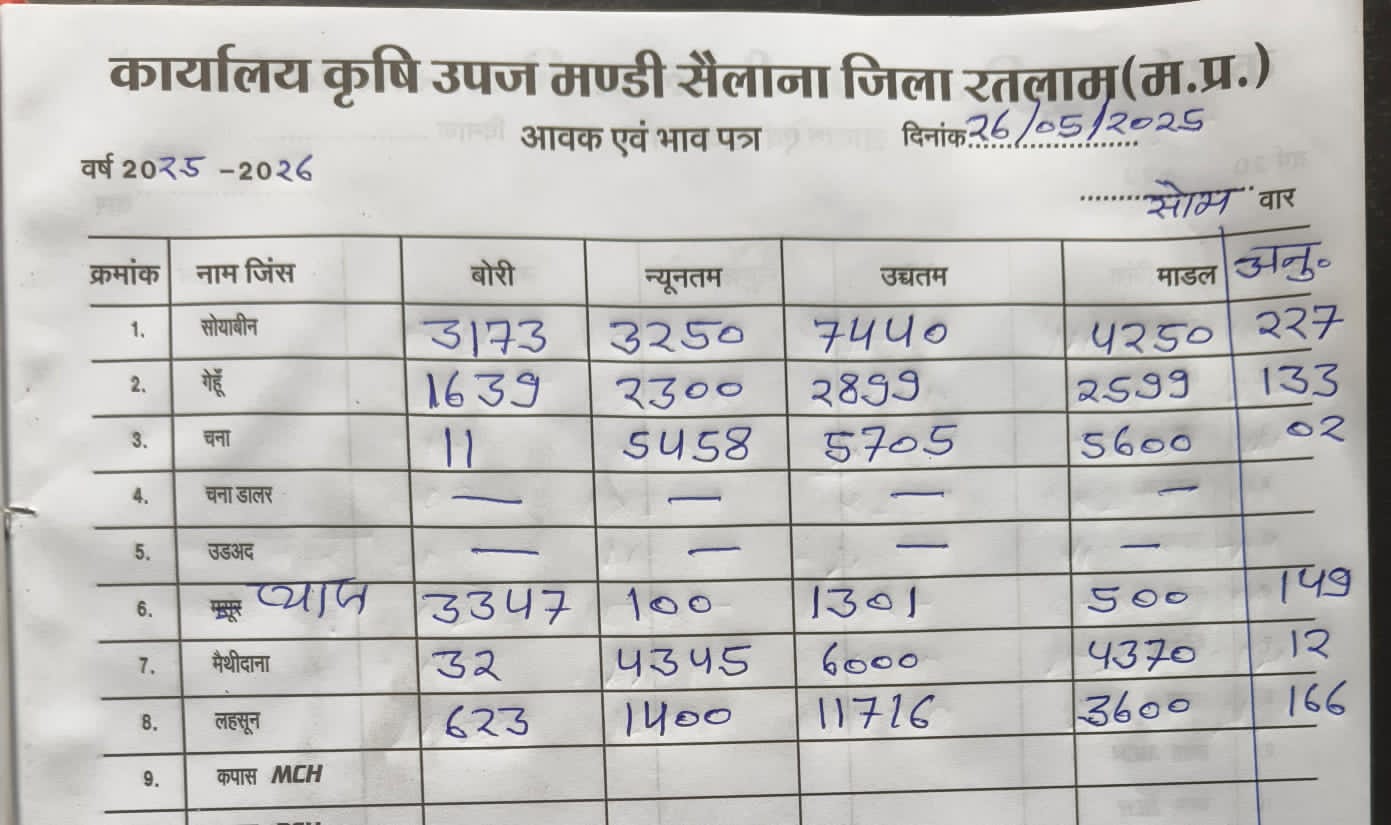 कार्यालय कृषि उपज मण्डी सैलाना जिला रतलाम(म.प्र.)
आवक एवं भाव पत्र दिनांक 26/05/2025
वर्ष 2025 -2026
सोम वार
क्रमांक नाम जिंस बोरी न्यूनतम उच्चतम माडल अनु०
1. सोयाबीन 3173 3250 7440 4250 227
2. गेहूँ 1639 2300 2899 2599 133
3. चना 11 5458 5705 5600 02
4. चना डालर — — — —
5. उडअद — — — —
6. मसूर प्याज 3347 100 1301 500 149
7. मैथीदाना 32 4345 6000 4370 12
8. लहसून 623 1400 11716 3600 166
9. कपास MCH